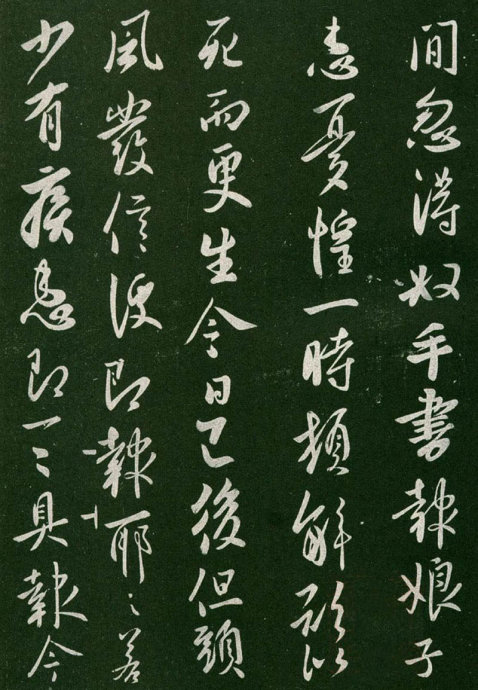 間忽得奴手書報娘子
患憂惶一時頓解欲似
死而更生今日已後但頭
風發信便即報耶〻若
少有疾患即一〻具報今